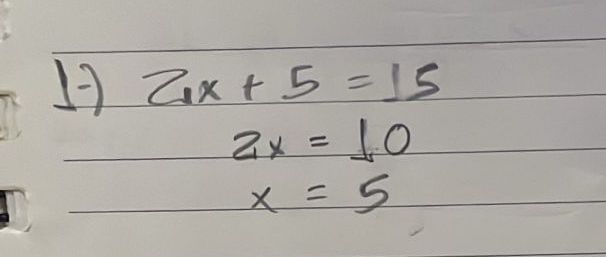 1-) 2x + 5 = 15
2x = 10
x = 5